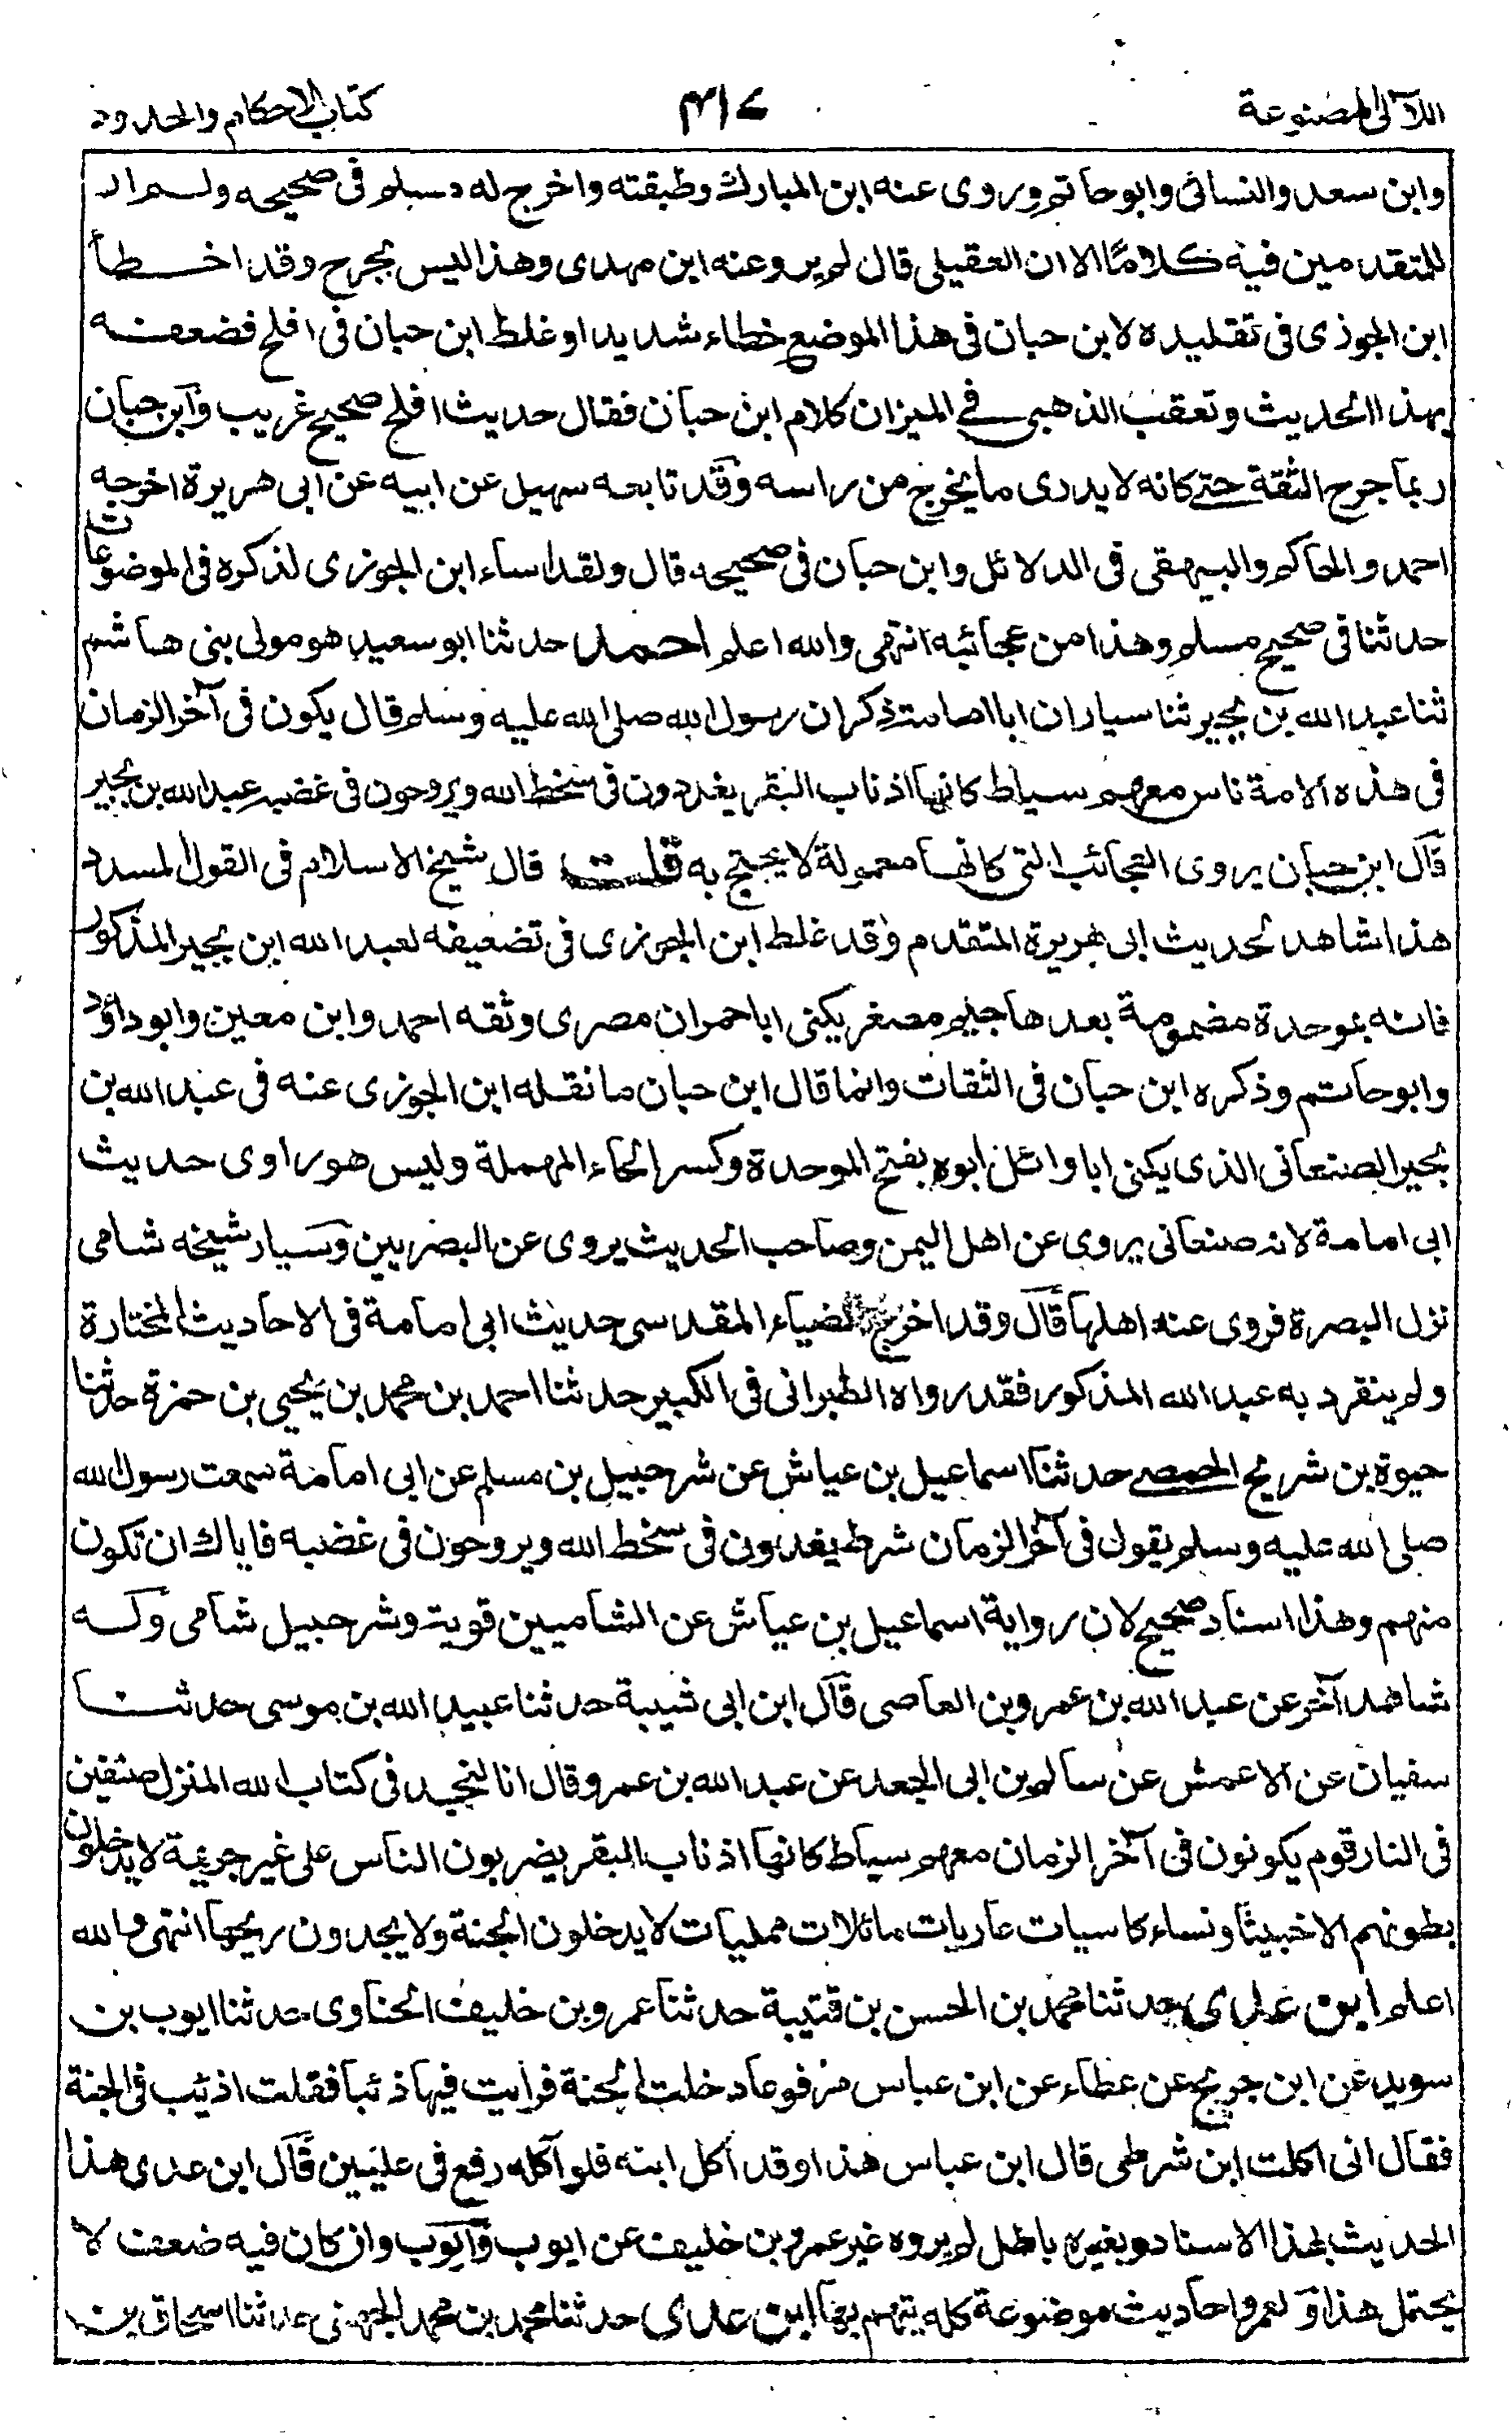 اللآلى المصنوعة
٤١٧
كتاب الاحكام والحدود
وابن سعد والنسائى وابو حاتم وروى عنه ابن المبارك وطبقته واخرج له مسلم فى صحيحه ولم ار
للمتقدمين فيه كلامًا الا ان العقيلى قال لم يرو عنه ابن مهدى وهذا ليس بجرح وقد اخطأ
ابن الجوزى فى تقليده لابن حبان فى هذا الموضع خطاء شديدا وغلط ابن حبان فى افلح فضعفه
بهذا الحديث وتعقب الذهبى فى الميزان كلام ابن حبان فقال حديث افلح صحيح غريب وابن حبان
ربما جرح الثقة حتى كانه لا يدرى ما يخرج من راسه وقد تابعه سهيل عن ابيه عن ابى هريرة اخرجه
احمد والحاكم والبيهقى فى الدلائل وابن حبان فى صحيحه قال ولقد اساء ابن الجوزى لذكره فى الموضوعات
حدثنا فى صحيح مسلم وهذا من عجائبه انتهى والله اعلم احمد حدثنا ابو سعيد هو مولى بنى هاشم
ثنا عبد الله بن بجير ثنا سيار ان ابا امامة ذكر ان رسول الله صلى الله عليه وسلم قال يكون فى آخر الزمان
فى هذه الامة ناس معهم سياط كانها اذناب البقر يغدون فى سخط الله ويروحون فى غضبه عبد الله بن بجير
قال ابن حبان يروى العجائب التى كانها معمولة لا يحتج به قلت قال شيخ الاسلام فى القول المسدد
هذا شاهد لحديث ابى هريرة المتقدم وقد غلط ابن الجوزى فى تضعيفه لعبد الله ابن بجير المذكور
فانه بموحدة مضمومة بعدها جيم مصغر يكنى ابا حمران مصرى وثقه احمد وابن معين وابو داؤد
وابو حاتم وذكره ابن حبان فى الثقات وانما قال ابن حبان ما نقله ابن الجوزى عنه فى عبد الله بن
بحير الصنعانى الذى يكنى ابا وائل ابوه بفتح الموحدة وكسر الحاء المهملة وليس هو راوى حديث
ابى امامة لانه صنعانى يروى عن اهل اليمن وصاحب الحديث يروى عن البصريين وسيار شيخه شامى
نزل البصرة فروى عنه اهلها قال وقد اخرج الضياء المقدسى حديث ابى امامة فى الاحاديث المختارة
ولم ينفرد به عبد الله المذكور فقد رواه الطبرانى فى الكبير حدثنا احمد بن محمد بن يحيى بن حمزة حدثنا
حيوة بن شريح الحمصى حدثنا اسماعيل بن عياش عن شرحبيل بن مسلم عن ابى امامة سمعت رسول الله
صلى الله عليه وسلم يقول فى آخر الزمان شرط يغدون فى سخط الله ويروحون فى غضبه فاياك ان تكون
منهم وهذا اسناد صحيح لان رواية اسماعيل بن عياش عن الشاميين قوية وشرحبيل شامى وله
شاهد آخر عن عبد الله بن عمرو بن العاصى قال ابن ابى شيبة حدثنا عبيد الله بن موسى حدثنا
سفيان عن الاعمش عن سالم بن ابى الجعد عن عبد الله بن عمرو قال انا لنجد فى كتاب الله المنزل صنفين
فى النار قوم يكونون فى آخر الزمان معهم سياط كانها اذناب البقر يضربون الناس على غير جريمة لا يدخلون
بطونهم الا خبيثًا ونساء كاسيات عاريات مائلات مميليات لا يدخلون الجنة ولا يجدون ريحها انتهى والله
اعلم ابن عدى حدثنا محمد بن الحسن بن قتيبة حدثنا عمرو بن خليف الحناوى حدثنا ايوب بن
سويد عن ابن جريج عن عطاء عن ابن عباس مرفوعا دخلت الجنة فرايت فيها ذئبا فقلت اذئب فى الجنة
فقال انى اكلت ابن شرطى قال ابن عباس هذا وقد اكل ابنه فلو آكله رفع فى عليين قال ابن عدى هذا
الحديث بهذا الاسناد وبغيره باطل لم يروه غير عمرو بن خليف عن ايوب وايوب وان كان فيه ضعف لا
يحتمل هذا ولعمرو احاديث موضوعة كله يتهم بها ابن عدى حدثنا محمد بن محمد الجهنى حدثنا اسحاق بن